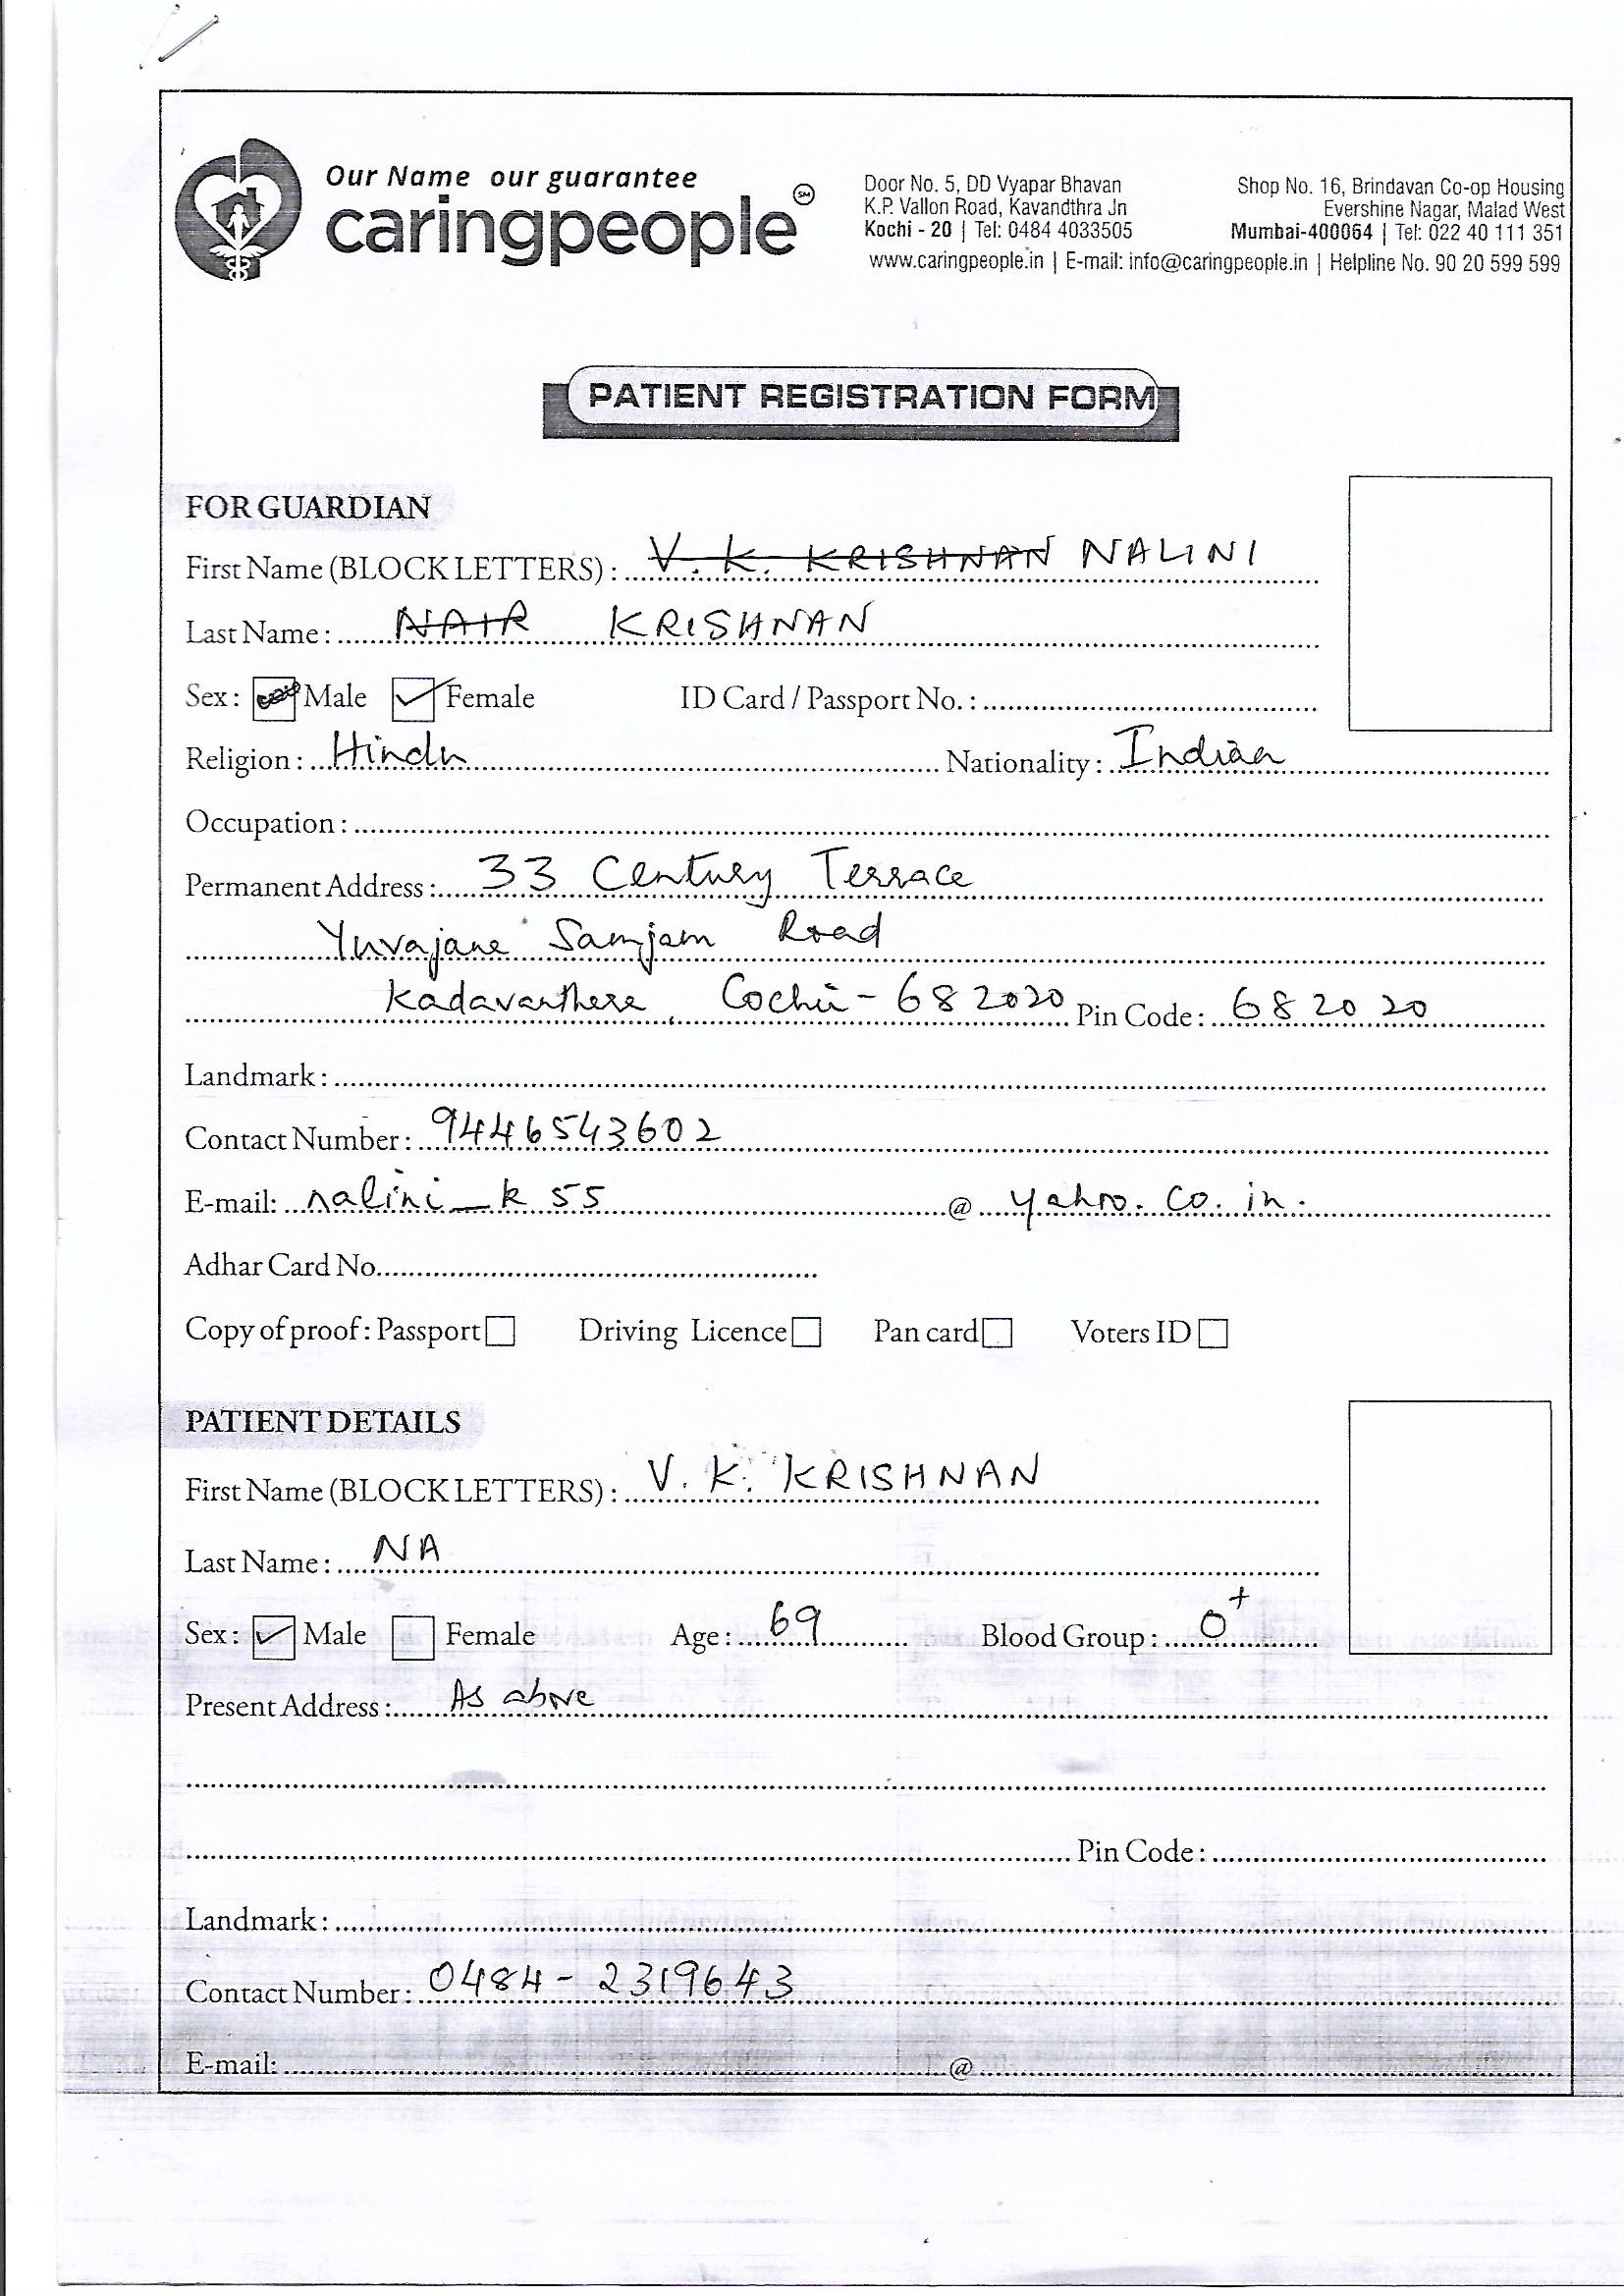 Our Name our guarantee
caringpeople SM
Door No. 5, DD Vyapar Bhavan
K.P. Vallon Road, Kavandthra Jn
Kochi - 20 | Tel: 0484 4033505
Shop No. 16, Brindavan Co-op Housing
Evershine Nagar, Malad West
Mumbai-400064 | Tel: 022 40 111 351
www.caringpeople.in | E-mail: info@caringpeople.in | Helpline No. 90 20 599 599
PATIENT REGISTRATION FORM
FOR GUARDIAN
First Name (BLOCK LETTERS) : V. K. KRISHNAN NALINI
Last Name : NAIR KRISHNAN
Sex : Male Female ID Card / Passport No. :
Religion : Hindu Nationality : Indian
Occupation :
Permanent Address : 33 Century Terrace
Yuvajana Samjam Road
Kadavanthera, Cochin - 682020 Pin Code : 682020
Landmark :
Contact Number : 9446543602
E-mail: nalini_k55 @ yahoo.co.in.
Adhar Card No.
Copy of proof : Passport Driving Licence Pan card Voters ID
PATIENT DETAILS
First Name (BLOCK LETTERS) : V. K. KRISHNAN
Last Name : NA
Sex : Male Female Age : 69 Blood Group : O+
Present Address : As above
Pin Code :
Landmark :
Contact Number : 0484 - 2319643
E-mail: @